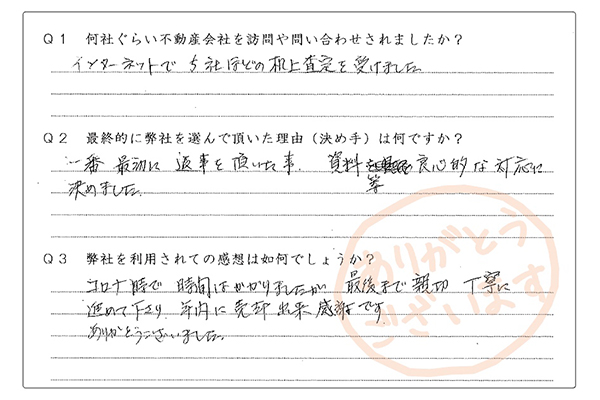 Q1 何社ぐらい不動産会社を訪問や問い合わせされましたか？
インターネットで 5社ほどの机上査定を受けました
Q2 最終的に弊社を選んで頂いた理由（決め手）は何ですか？
一番 最初に 返事を頂いた事、 資料等 良心的な対応に
決めました。
Q3 弊社を利用されての感想は如何でしょうか？
コロナ時で 時間はかかりましたが 最後まで親切 丁寧に
進めて下さり 年内に売却出来感謝です。
ありがとうございました。
ありがとう
ございます